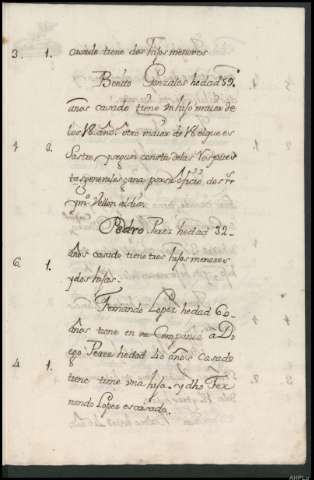 3. 1. casado tiene dos hijos menores
Benito Gonzales hedad 59
años casado tiene un hijo maior de
los 18 años otro maior de 18 el que es
4 0. Sastre, segun consta de las Respues
tas generales gana por su oficio dos rr
Vellon al dia.
Pedro Perez hedad 32
6. 1. años casado tiene tres hijos menores
y dos hijas.
Fernando Lopez hedad 60
años tiene en su Compañia a D
ego Perez hedad 40 años casado
4. 1. tiene una hija. y dho Fer
nando Lopez es casado.
AHPLu